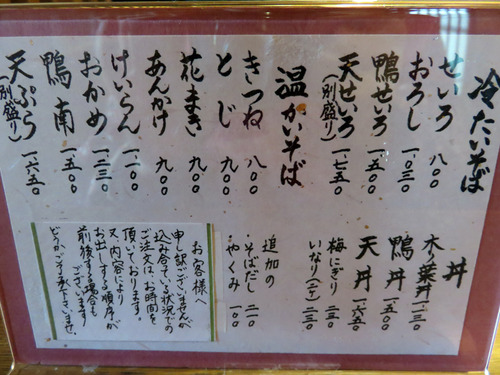 冷たいそば
せいろ 八〇〇
おろし 一・〇三〇
鴨せいろ 一・五〇〇
天せいろ 一・七五〇
(別盛り)
温かいそば
きつね 八〇〇
とじ 九〇〇
花まき 九〇〇
あんかけ 九〇〇
けいらん 一・一〇〇
おかめ
鴨南 一・五〇〇
天ぷら 一・六五〇
(別盛り)
丼
木の葉丼 一・一三〇
鴨丼 一・五〇〇
天丼 一・六五〇
梅にぎり
いなり(二ケ)
追加の
・そばだし 二一〇
・やくみ 一〇〇
お客様へ
申し訳ございませんが
込み合ている状況での
ご注文は、お時間を
頂いております。
又、内容により
お出しする順序が
前後する場合も
ございます
どうかご了承下さいませ。